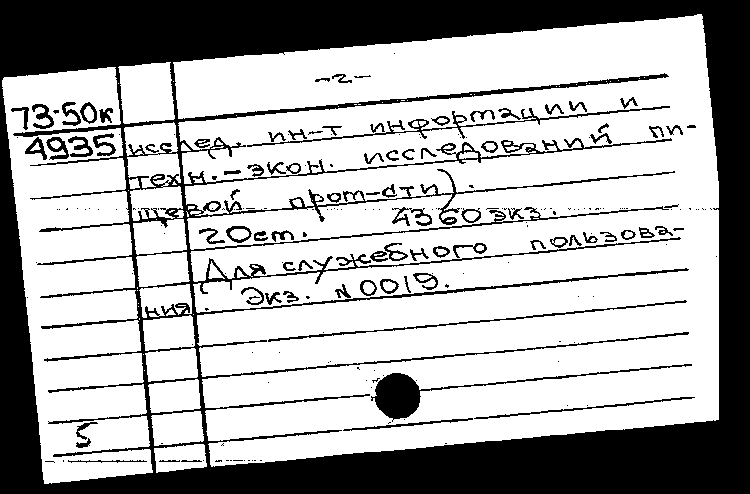 -2-
73-50к
4935
исслед. ин-т информации и
техн.-экон. исследований пи-
щевой пром-сти).
20 ст. 4360 экз.
Для служебного пользова-
ния. Экз. N 0019.
5